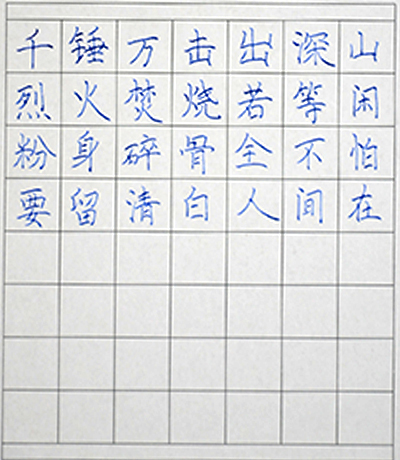 千锤万击出深山
烈火焚烧若等闲
粉身碎骨全不怕
要留清白人间在